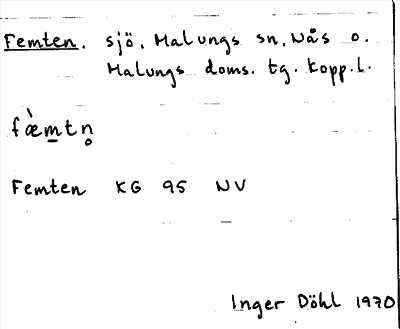 Femten. sjö, Malungs sn, Nås o.
Malungs doms. tg. Kopp. l.
fæ̀m̲tn̥
Femten KG 95 NV
Inger Döhl 1970